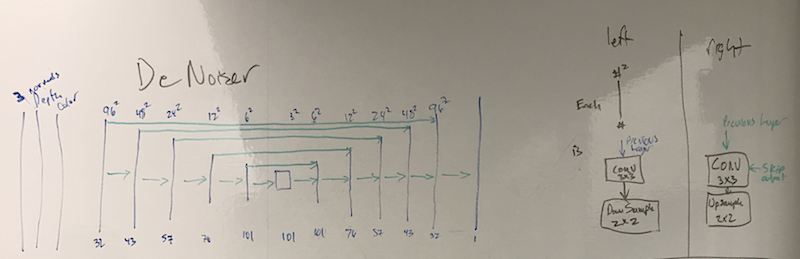 De Noiser
3 normals
Depth
Color
96² 48² 24² 12² 6² 3² 6² 12² 24² 48² 96²
32 43 57 76 101 101 101 76 57 43 32 1
left
right
#²
Each
#
is
Previous Layer
CONV
3x3
Down Sample
2x2
Previous Layer
CONV
3x3
Skip
output
UpSample
2x2